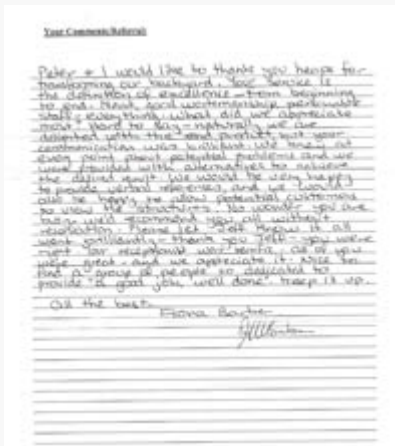 Your Comments/Referral:
Peter & I would like to thank you heaps for
transforming our backyard. Your service is
the definition of excellence - from beginning
to end. Neat, good workmanship, personable
staff, everything. What did we appreciate
most? Hard to say - naturally we are
delighted with the end product but your
communication was brilliant. We knew at
every point about potential problems and we
were provided with alternatives to achieve
the desired result. We would be very happy
to provide verbal references, and we would
also be happy to allow potential customers
to view the structure. No wonder you are
busy we'll recommend you all without
reservation. Please let Jeff know it all
went brilliantly - thank you Jeff - you were
right. Your receptionist was terrific. All of you
were great - and we appreciate it. Nice to
find a group of people so dedicated to
provide "a good job, well done". Keep it up.
All the best.
Fiona